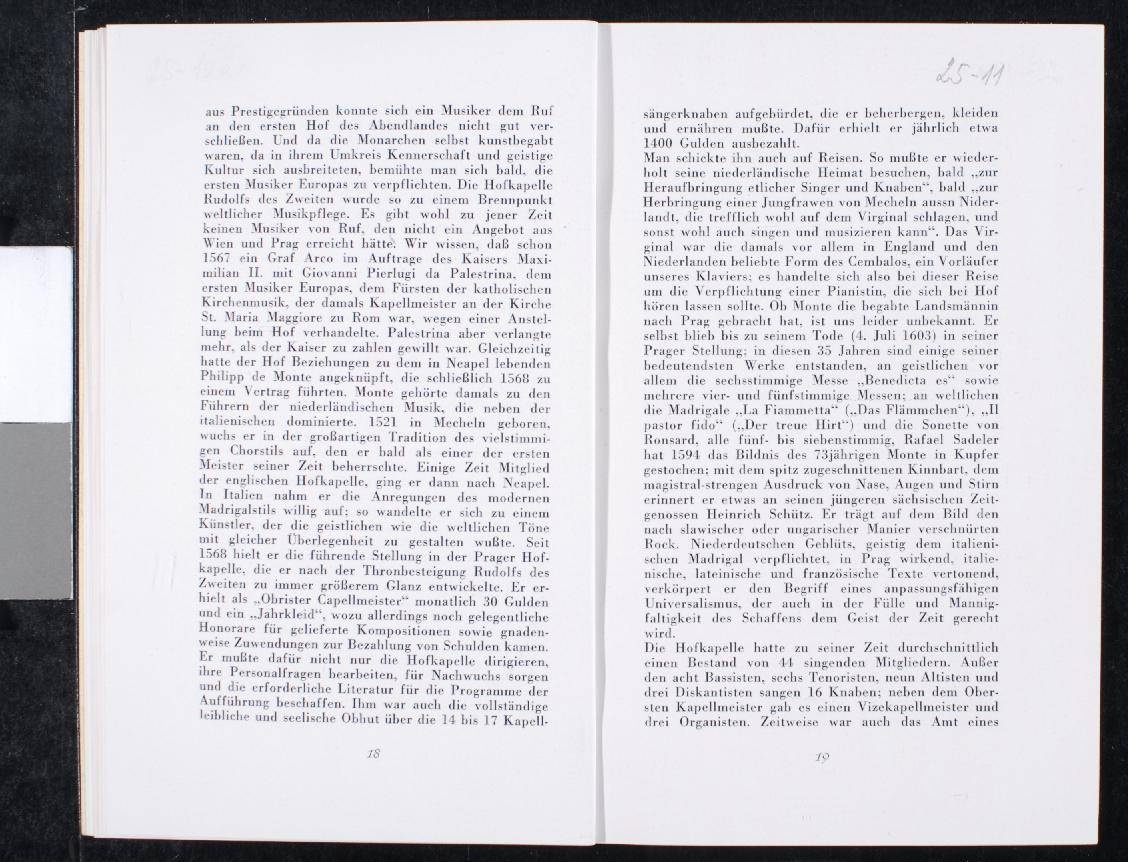 aus Prestigegründen konnte sich ein Musiker dem Ruf
an den ersten Hof des Abendlandes nicht gut ver-
schließen. Und da die Monarchen selbst kunstbegabt
waren, da in ihrem Umkreis Kennerschaft und geistige
Kultur sich ausbreiteten, bemühte man sich bald, die
ersten Musiker Europas zu verpflichten. Die Hofkapelle
Rudolfs des Zweiten wurde so zu einem Brennpunkt
weltlicher Musikpflege. Es gibt wohl zu jener Zeit
keinen Musiker von Ruf, den nicht ein Angebot aus
Wien und Prag erreicht hätte. Wir wissen, daß schon
1567 ein Graf Arco im Auftrage des Kaisers Maxi-
milian II. mit Giovanni Pierlugi da Palestrina, dem
ersten Musiker Europas, dem Fürsten der katholischen
Kirchenmusik, der damals Kapellmeister an der Kirche
St. Maria Maggiore zu Rom war, wegen einer Anstel-
lung beim Hof verhandelte. Palestrina aber verlangte
mehr, als der Kaiser zu zahlen gewillt war. Gleichzeitig
hatte der Hof Beziehungen zu dem in Neapel lebenden
Philipp de Monte angeknüpft, die schließlich 1568 zu
einem Vertrag führten. Monte gehörte damals zu den
Führern der niederländischen Musik, die neben der
italienischen dominierte. 1521 in Mecheln geboren,
wuchs er in der großartigen Tradition des vielstimmi-
gen Chorstils auf, den er bald als einer der ersten
Meister seiner Zeit beherrschte. Einige Zeit Mitglied
der englischen Hofkapelle, ging er dann nach Neapel.
In Italien nahm er die Anregungen des modernen
Madrigalstils willig auf; so wandelte er sich zu einem
Künstler, der die geistlichen wie die weltlichen Töne
mit gleicher Überlegenheit zu gestalten wußte. Seit
1568 hielt er die führende Stellung in der Prager Hof-
kapelle, die er nach der Thronbesteigung Rudolfs des
Zweiten zu immer größerem Glanz entwickelte. Er er-
hielt als „Obrister Capellmeister“ monatlich 30 Gulden
und ein „Jahrkleid“, wozu allerdings noch gelegentliche
Honorare für gelieferte Kompositionen sowie gnaden-
weise Zuwendungen zur Bezahlung von Schulden kamen.
Er mußte dafür nicht nur die Hofkapelle dirigieren,
ihre Personalfragen bearbeiten, für Nachwuchs sorgen
und die erforderliche Literatur für die Programme der
Aufführung beschaffen. Ihm war auch die vollständige
leibliche und seelische Obhut über die 14 bis 17 Kapell-
18
25-11
sängerknaben aufgebürdet, die er beherbergen, kleiden
und ernähren mußte. Dafür erhielt er jährlich etwa
1400 Gulden ausbezahlt.
Man schickte ihn auch auf Reisen. So mußte er wieder-
holt seine niederländische Heimat besuchen, bald „zur
Heraufbringung etlicher Singer und Knaben“, bald „zur
Herbringung einer Jungfrawen von Mecheln aussn Nider-
landt, die trefflich wohl auf dem Virginal schlagen, und
sonst wohl auch singen und musizieren kann“. Das Vir-
ginal war die damals vor allem in England und den
Niederlanden beliebte Form des Cembalos, ein Vorläufer
unseres Klaviers; es handelte sich also bei dieser Reise
um die Verpflichtung einer Pianistin, die sich bei Hof
hören lassen sollte. Ob Monte die begabte Landsmännin
nach Prag gebracht hat, ist uns leider unbekannt. Er
selbst blieb bis zu seinem Tode (4. Juli 1603) in seiner
Prager Stellung; in diesen 35 Jahren sind einige seiner
bedeutendsten Werke entstanden, an geistlichen vor
allem die sechsstimmige Messe „Benedicta es“ sowie
mehrere vier- und fünfstimmige Messen; an weltlichen
die Madrigale „La Fiammetta“ („Das Flämmchen“), „Il
pastor fido“ („Der treue Hirt“) und die Sonette von
Ronsard, alle fünf- bis siebenstimmig, Rafael Sadeler
hat 1594 das Bildnis des 73jährigen Monte in Kupfer
gestochen; mit dem spitz zugeschnittenen Kinnbart, dem
magistral-strengen Ausdruck von Nase, Augen und Stirn
erinnert er etwas an seinen jüngeren sächsischen Zeit-
genossen Heinrich Schütz. Er trägt auf dem Bild den
nach slawischer oder ungarischer Manier verschnürten
Rock. Niederdeutschen Geblüts, geistig dem italieni-
schen Madrigal verpflichtet, in Prag wirkend, italie-
nische, lateinische und französische Texte vertonend,
verkörpert er den Begriff eines anpassungsfähigen
Universalismus, der auch in der Fülle und Mannig-
faltigkeit des Schaffens dem Geist der Zeit gerecht
wird.
Die Hofkapelle hatte zu seiner Zeit durchschnittlich
einen Bestand von 44 singenden Mitgliedern. Außer
den acht Bassisten, sechs Tenoristen, neun Altisten und
drei Diskantisten sangen 16 Knaben; neben dem Ober-
sten Kapellmeister gab es einen Vizekapellmeister und
drei Organisten. Zeitweise war auch das Amt eines
19